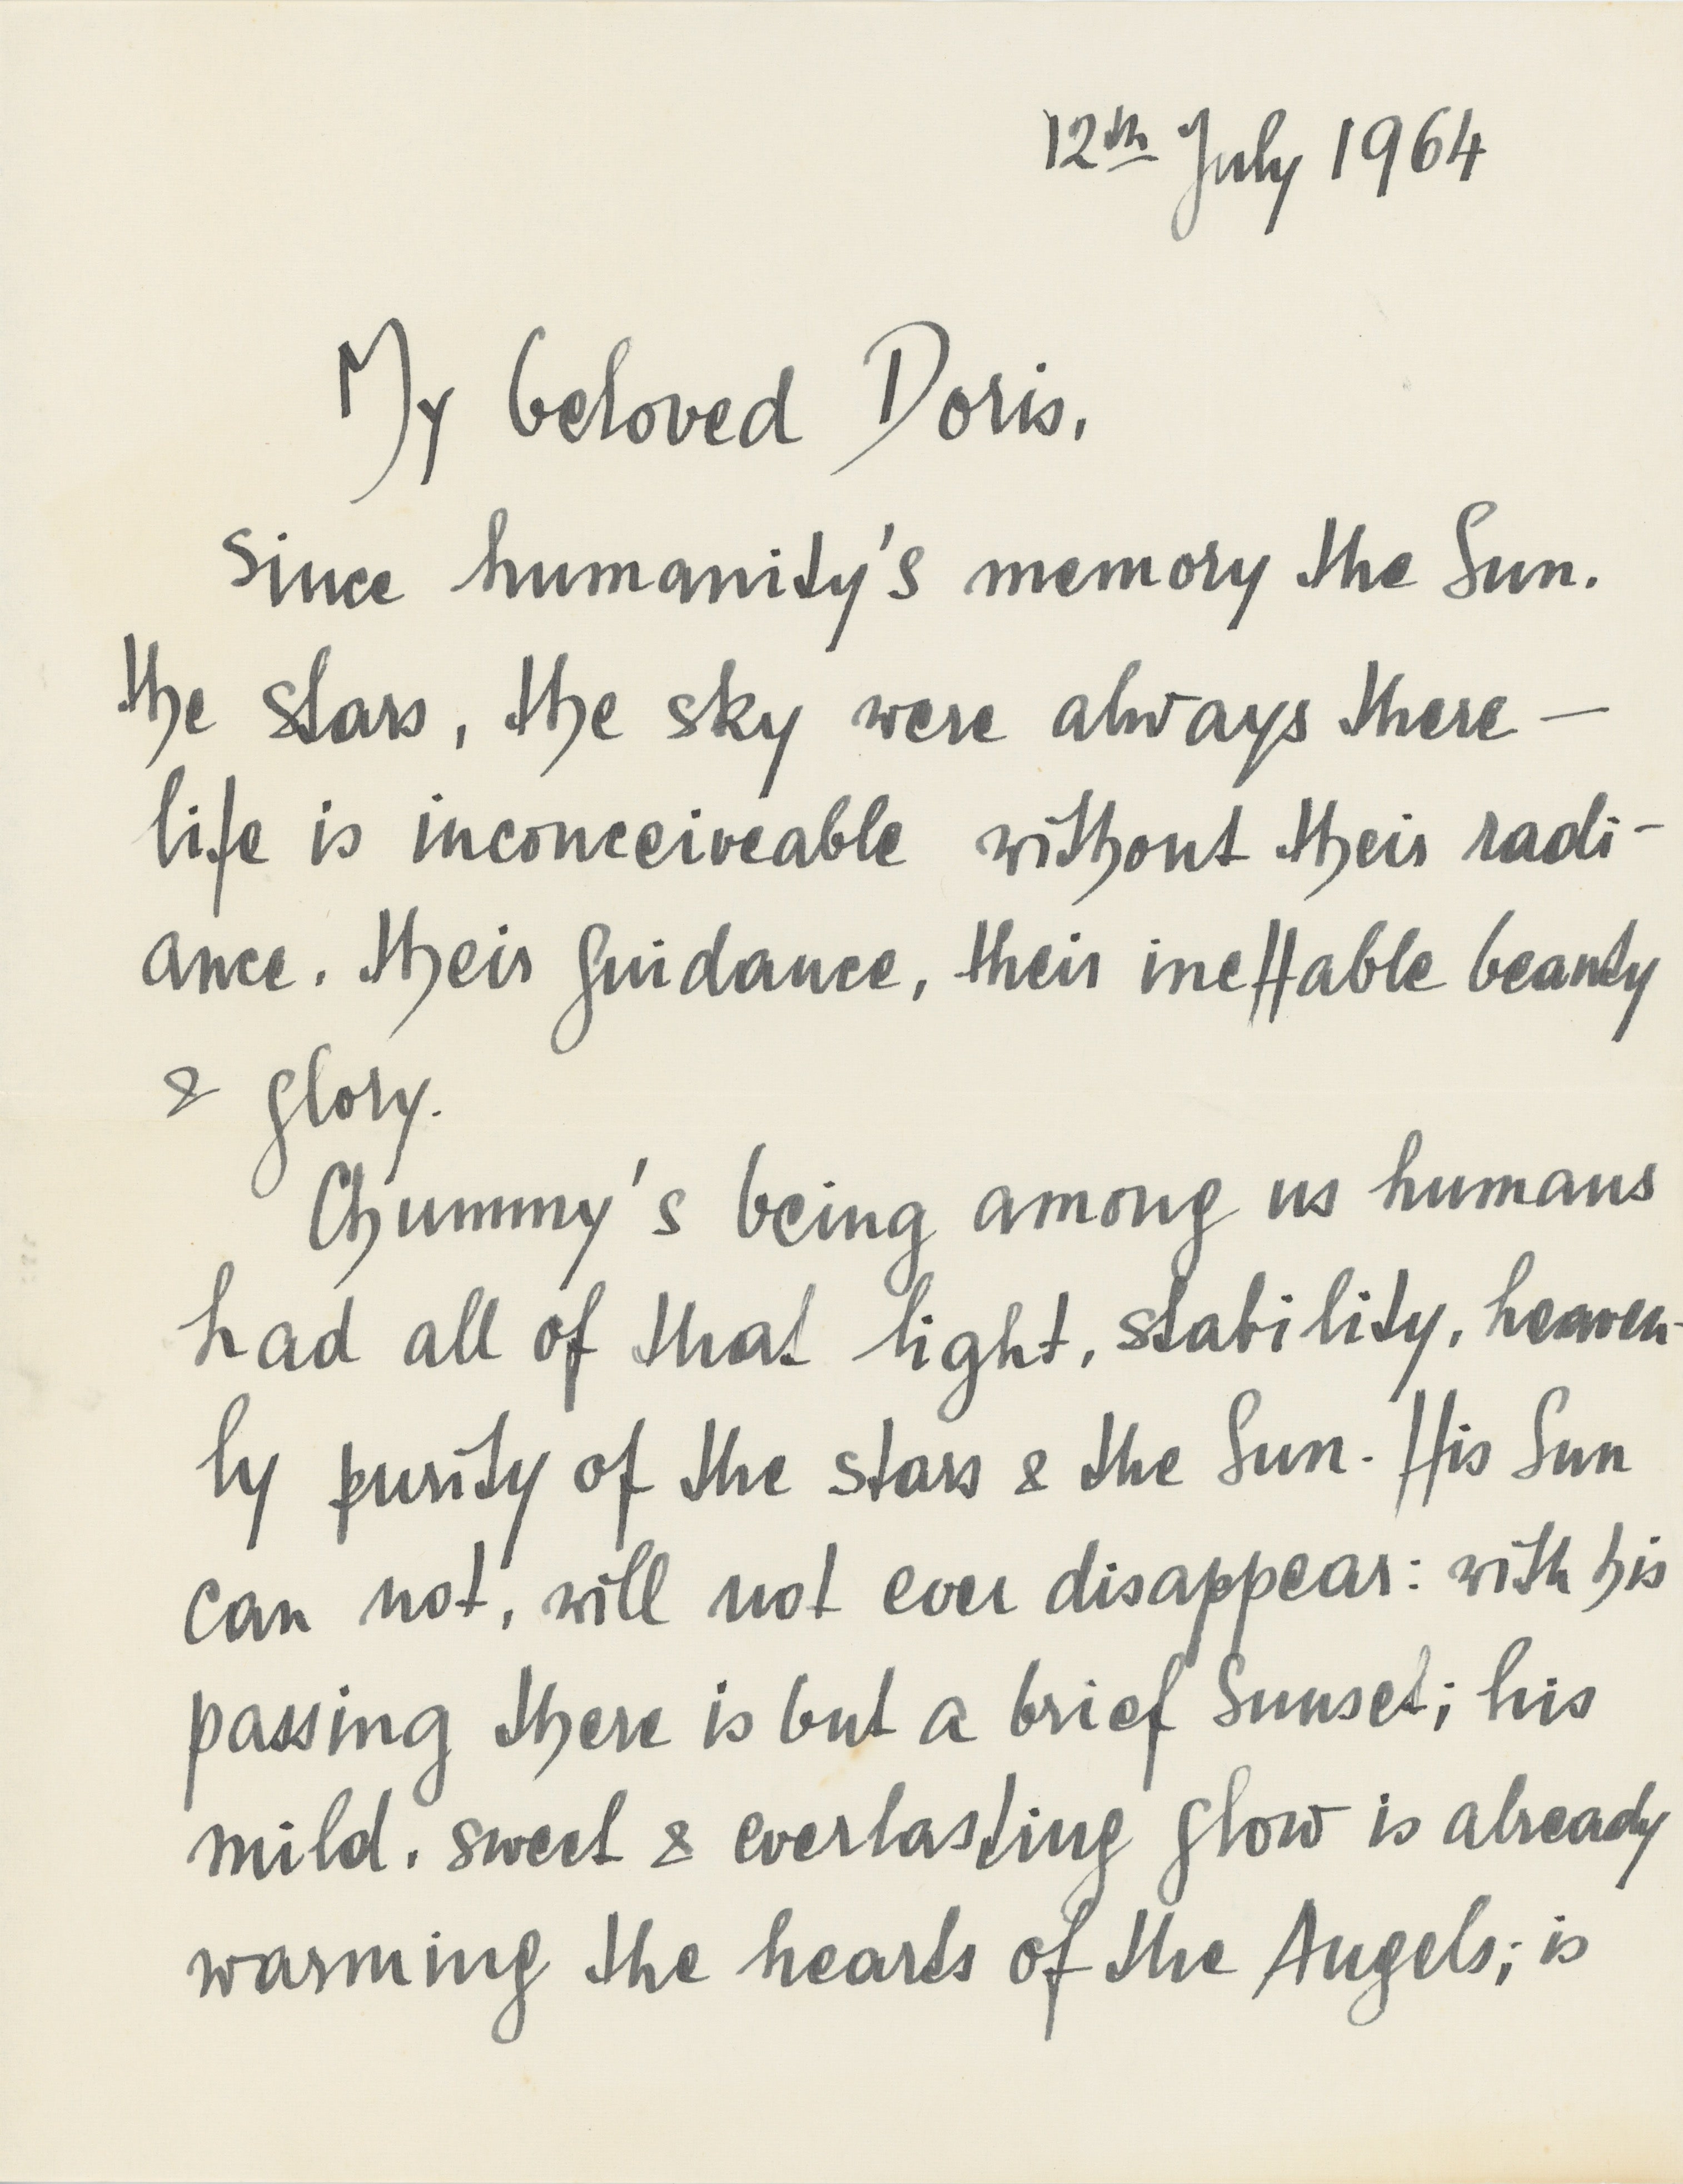 12th July 1964
My beloved Doris,
since humanity's memory the Sun,
the stars, the sky were always there —
life is inconceiveable without their radi-
ance, their guidance, their ineffable beauty
& glory.
Chummy's being among us humans
had all of that light, stability, heaven-
ly purity of the stars & the Sun. His Sun
can not, will not ever disappear: with his
passing there is but a brief Sunset; his
mild, sweet & everlasting glow is already
warming the hearts of the Angels; is